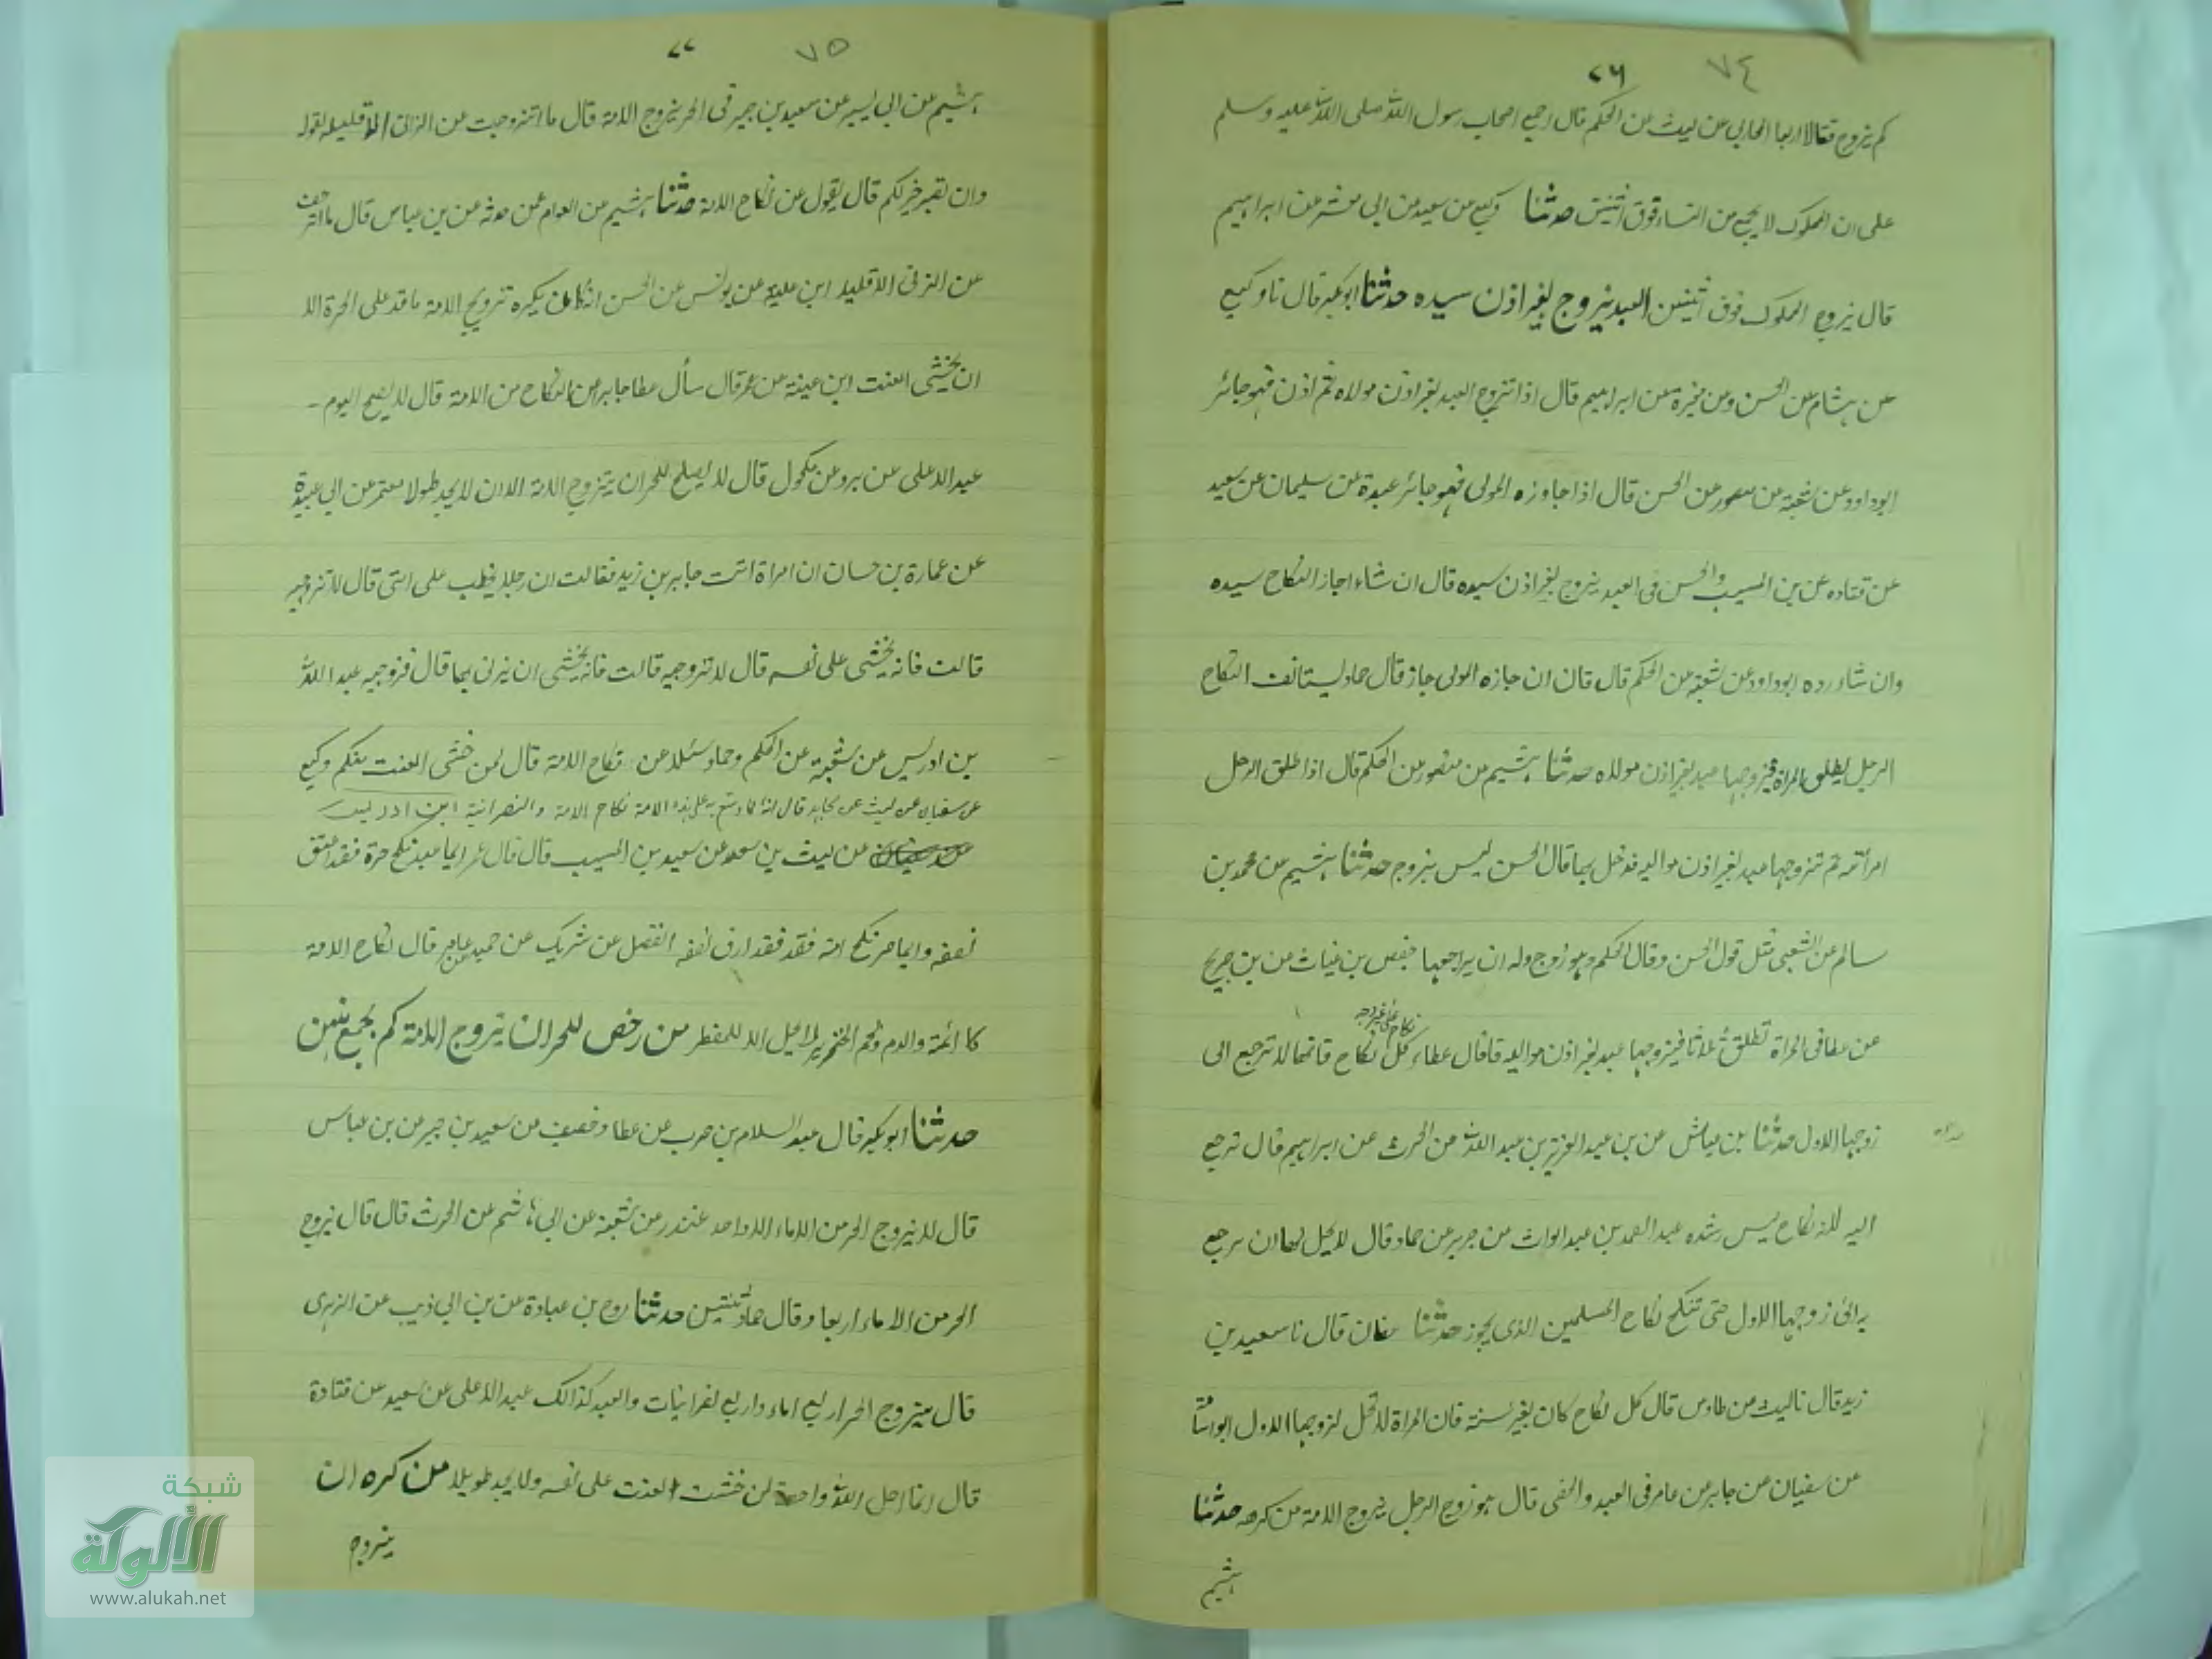 ٧٤ ٧٦
كم يتزوج فقالا اربعا المحاربي عن ليث عن الحكم قال اجمع اصحاب رسول الله صلى الله عليه وسلم
على ان المملوك لا يجمع من النساء فوق اثنتين حدثنا وكيع عن سعيد عن ابي معشر عن ابراهيم
قال يتزوج المملوك فوق اثنتين العبد يتزوج بغير اذن سيده حدثنا ابو بكر قال نا وكيع
عن هشام عن الحسن وعن مغيرة عن ابراهيم قال اذا تزوج العبد بغير اذن مولاه ثم اذن فهو جائز
ابو داود عن شعبة عن منصور عن الحسن قال اذا جاوزه المولى فهو جائز عبدة عن سليمان عن سعيد
عن قتاده عن بن المسيب والحسن في العبد يتزوج بغير اذن سيده قال ان شاء اجاز النكاح سيده
وان شاء رده ابو داود عن شعبة عن الحكم قال قال ان جازه المولى جاز قال حماد يستانف النكاح
الرجل يطلق المراة فيتزوجها عبد بغير اذن مولاه حدثنا هشيم عن منصور عن الحكم قال اذا طلق الرجل
امرأته ثم تزوجها عبد بغير اذن مواليه فدخل بها قال الحسن ليس بزوج حدثنا هشيم عن محمد بن
سالم عن الشعبي مثل قول الحسن وقال الحكم هو زوج وله ان يراجعها حفص بن غياث عن بن جريج
عن عطا في المراة تطلق ثلاثا فيتزوجها عبد بغير اذن مواليه قال عطاء كل نكاح على غير وجه نكاح فانها لا ترجع الى
زوجها الاول حدثنا بن عياش عن بن عبد العزيز بن عبد الله عن الحرث عن ابراهيم قال ترجع
اليه لانه نكاح ليس رشده عبد الصمد بن عبد الوارث عن جرير عن حماد قال لا يحل لها ان ترجع
به الى زوجها الاول حتى تنكح نكاح المسلمين الذي يجوز حدثنا عفان قال نا سعيد بن
زيد قال نا ليث عن طاوس قال كل نكاح كان بغير سنة فان المراة لا تحل لزوجها الاول ابو اسامة
عن سفيان عن جابر عن عامر في العبد والنفي قال هو زوج الرجل يتزوج الامة من كرهه حدثنا
هشيم
٧٥ ٧٧
هشيم عن ابي بشر عن سعيد بن جبير في الحر يتزوج الامة قال ما اتزوجت من الزنا الا قليلا لقوله
وان تصبر خير لكم قال يقول عن نكاح الامة حدثنا هشيم عن العوام عن حدثه عن بن عباس قال ما اتزحف
عن الزنى الا قليلا ابن علية عن يونس عن الحسن انه كان يكره تزويج الامة ما قدر على الحرة الا
ان يخشى العنت ابن عيينة عن عمر قال سأل عطا جابر عن النكاح من الامة قال لا يصلح اليوم -
عبد الاعلى عن برد عن مكحول قال لا يصلح للحر ان يتزوج الامة الا ان لا يجد طولا معتمر عن ابي عبيدة
عن عمارة بن حسان ان امراة اتت جابر بن زيد فقالت ان رجلا يخطب على امتى قال لا تزوجيه
قالت فانه يخشى على نفسه قال لا تزوجيه قالت فانه يخشى ان يزنى بها قال فزوجيه عبد الله
بن ادريس عن شعبة عن الحكم وحماد سئلا عن نكاح الامة قال لمن خشى العنت منكم وكيع
عن سفيان عن ليث عن مجاهد قال انه مما وسع به على هذه الامة نكاح الامة والنصرانية ابن ادريس
عن ليث بن سعد عن سعيد بن المسيب قال قال عمر ايما عبد نكح حرة فقد اعتق
نصفه وايما حر نكح امة فقد فقد ارق نصفه الفضل عن شريك عن حميد عن عامر قال نكاح الامة
كالميتة والدم ولحم الخنزير لا يحل الا للمضطر من رخص للحر ان يتزوج الامة كم يجمع منهن
حدثنا ابو بكر قال عبد السلام بن حرب عن عطا وخصيف عن سعيد بن جبير عن بن عباس
قال لا يتزوج الحر من الاماء الا واحد غندر عن شعبة عن ابي هاشم عن الحرث قال قال يتزوج
الحر من الاماء اربعا وقال حماد ثنتين حدثنا روح بن عبادة عن بن ابي ذيب عن الزهرى
قال يتزوج الحر اربع اماء واربع نصرانيات والعبد كذالك عبد الاعلى عن سعيد عن قتادة
قال انما احل الله واحدة لمن خشى العنت على نفسه ولا يجد طويلا من كره ان
يتزوج
شبكة
الألوكة
www.alukah.net